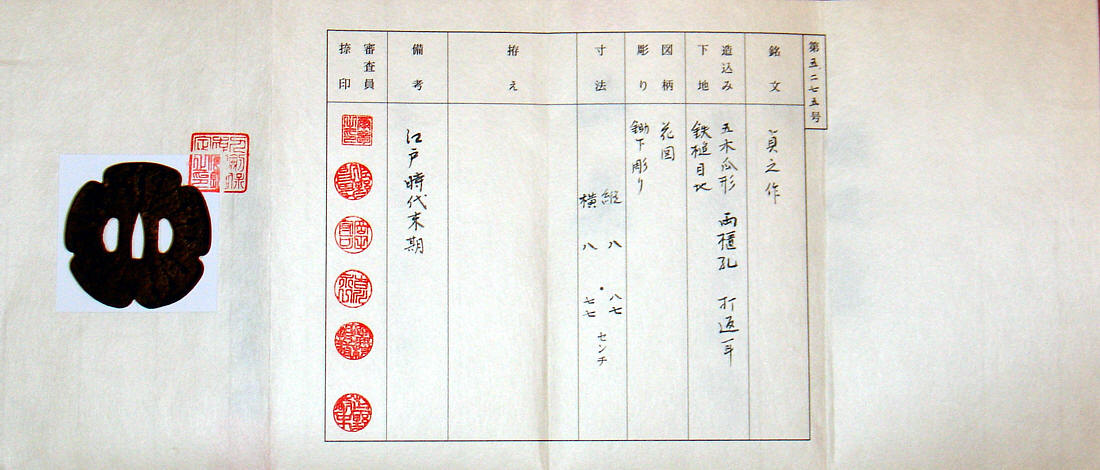 第五二七五号
銘文
貞之作
造込み
下地
五木瓜形 両櫃孔 打返耳
鉄槌目地
図柄
彫り
花図
鋤下彫り
寸法
縦 八・八七
横 八・七七
センチ
拵え
備考
江戸時代末期
審査員
捺印